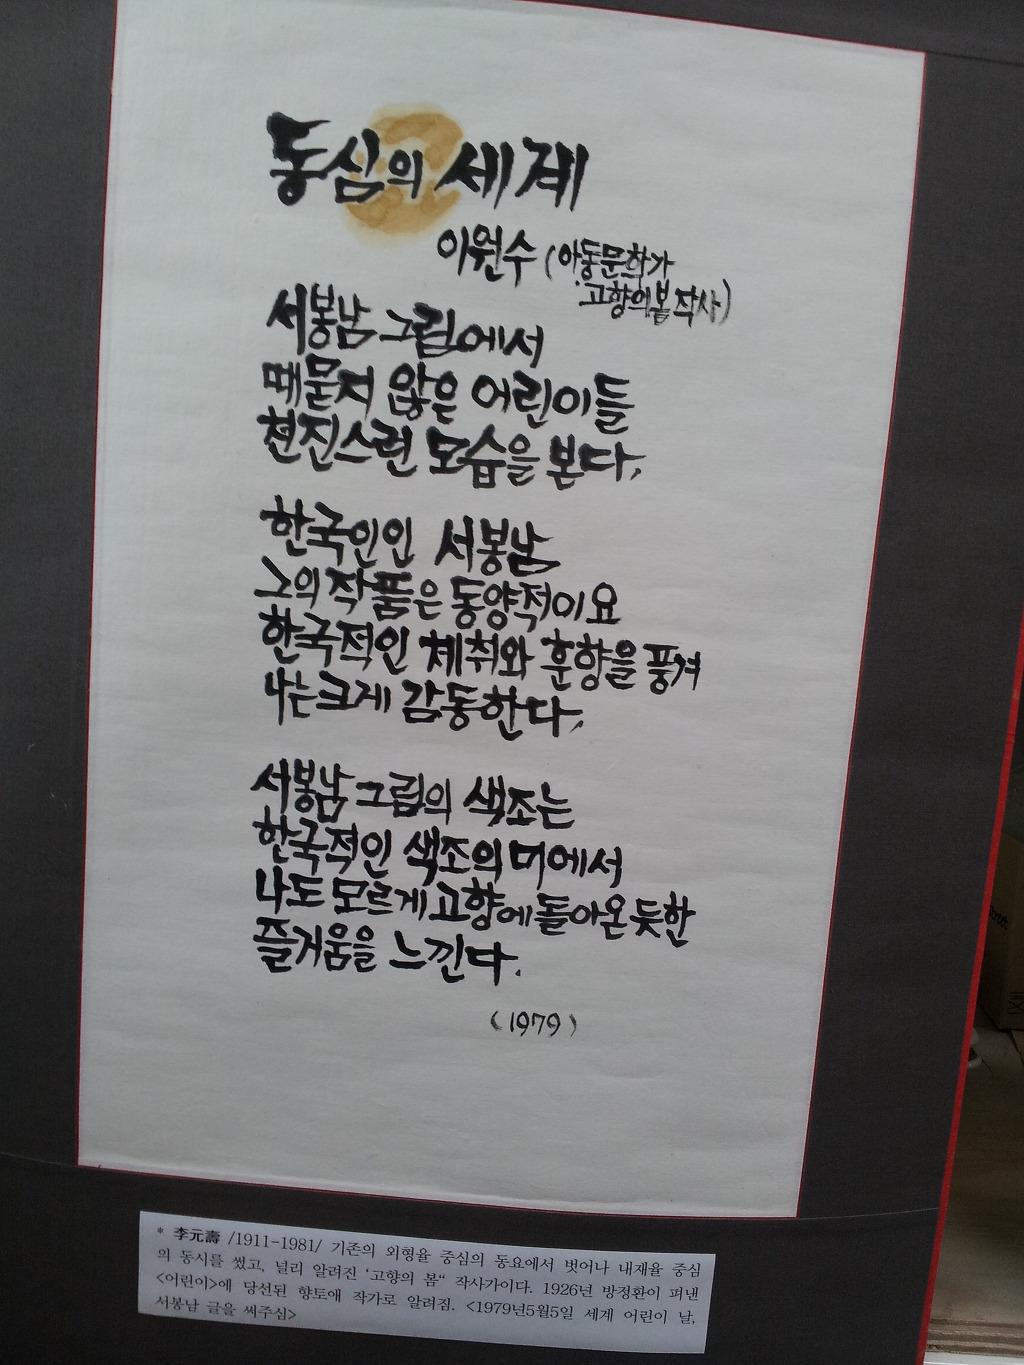 동심의 세계
이원수 (아동문학가
고향의봄 작사)
서봉남 그림에서
때묻지 않은 어린이들
천진스런 모습을 본다.
한국인인 서봉남
그의 작품은 동양적이요
한국적인 체취와 훈향을 풍겨
나는 크게 감동한다.
서봉남 그림의 색조는
한국적인 색조의 미에서
나도 모르게 고향에 돌아온 듯한
즐거움을 느낀다.
(1979)
* 李元壽 /1911-1981/ 기존의 외형율 중심의 동요에서 벗어나 내재율 중심
의 동시를 썼고, 널리 알려진 '고향의 봄“ 작사가이다. 1926년 방정환이 펴낸
<어린이>에 당선된 향토애 작가로 알려짐. <1979년5월5일 세계 어린이 날,
서봉남 글을 써주심>